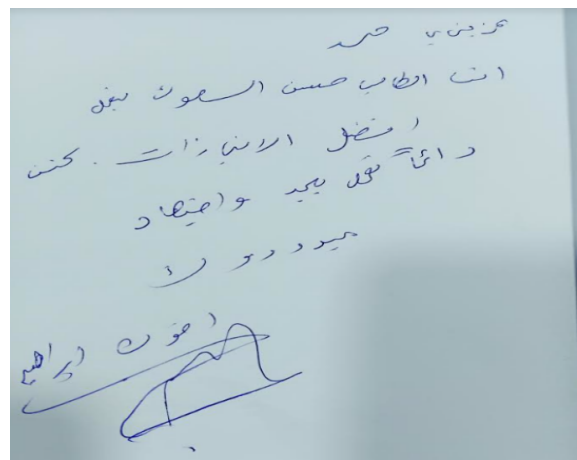 عزيزي حمد
انت الطالب حسن السلوك بفعل
افضل الانجازات . كنت
دائماً تعمل بجد واجتهاد
اخوك ابراهيم